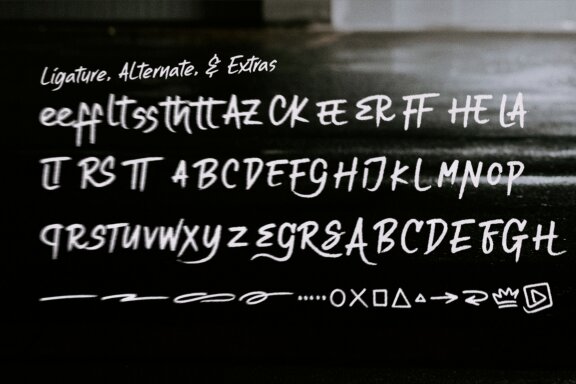 Ligature, Alternate, & Extras
ee ff lt ss th tt AZ CK EE ER FF HE LA
LT RS TT A B C D E F G H I J K L M N O P
Q R S T U V W X Y Z E G R & A B C D E F G H